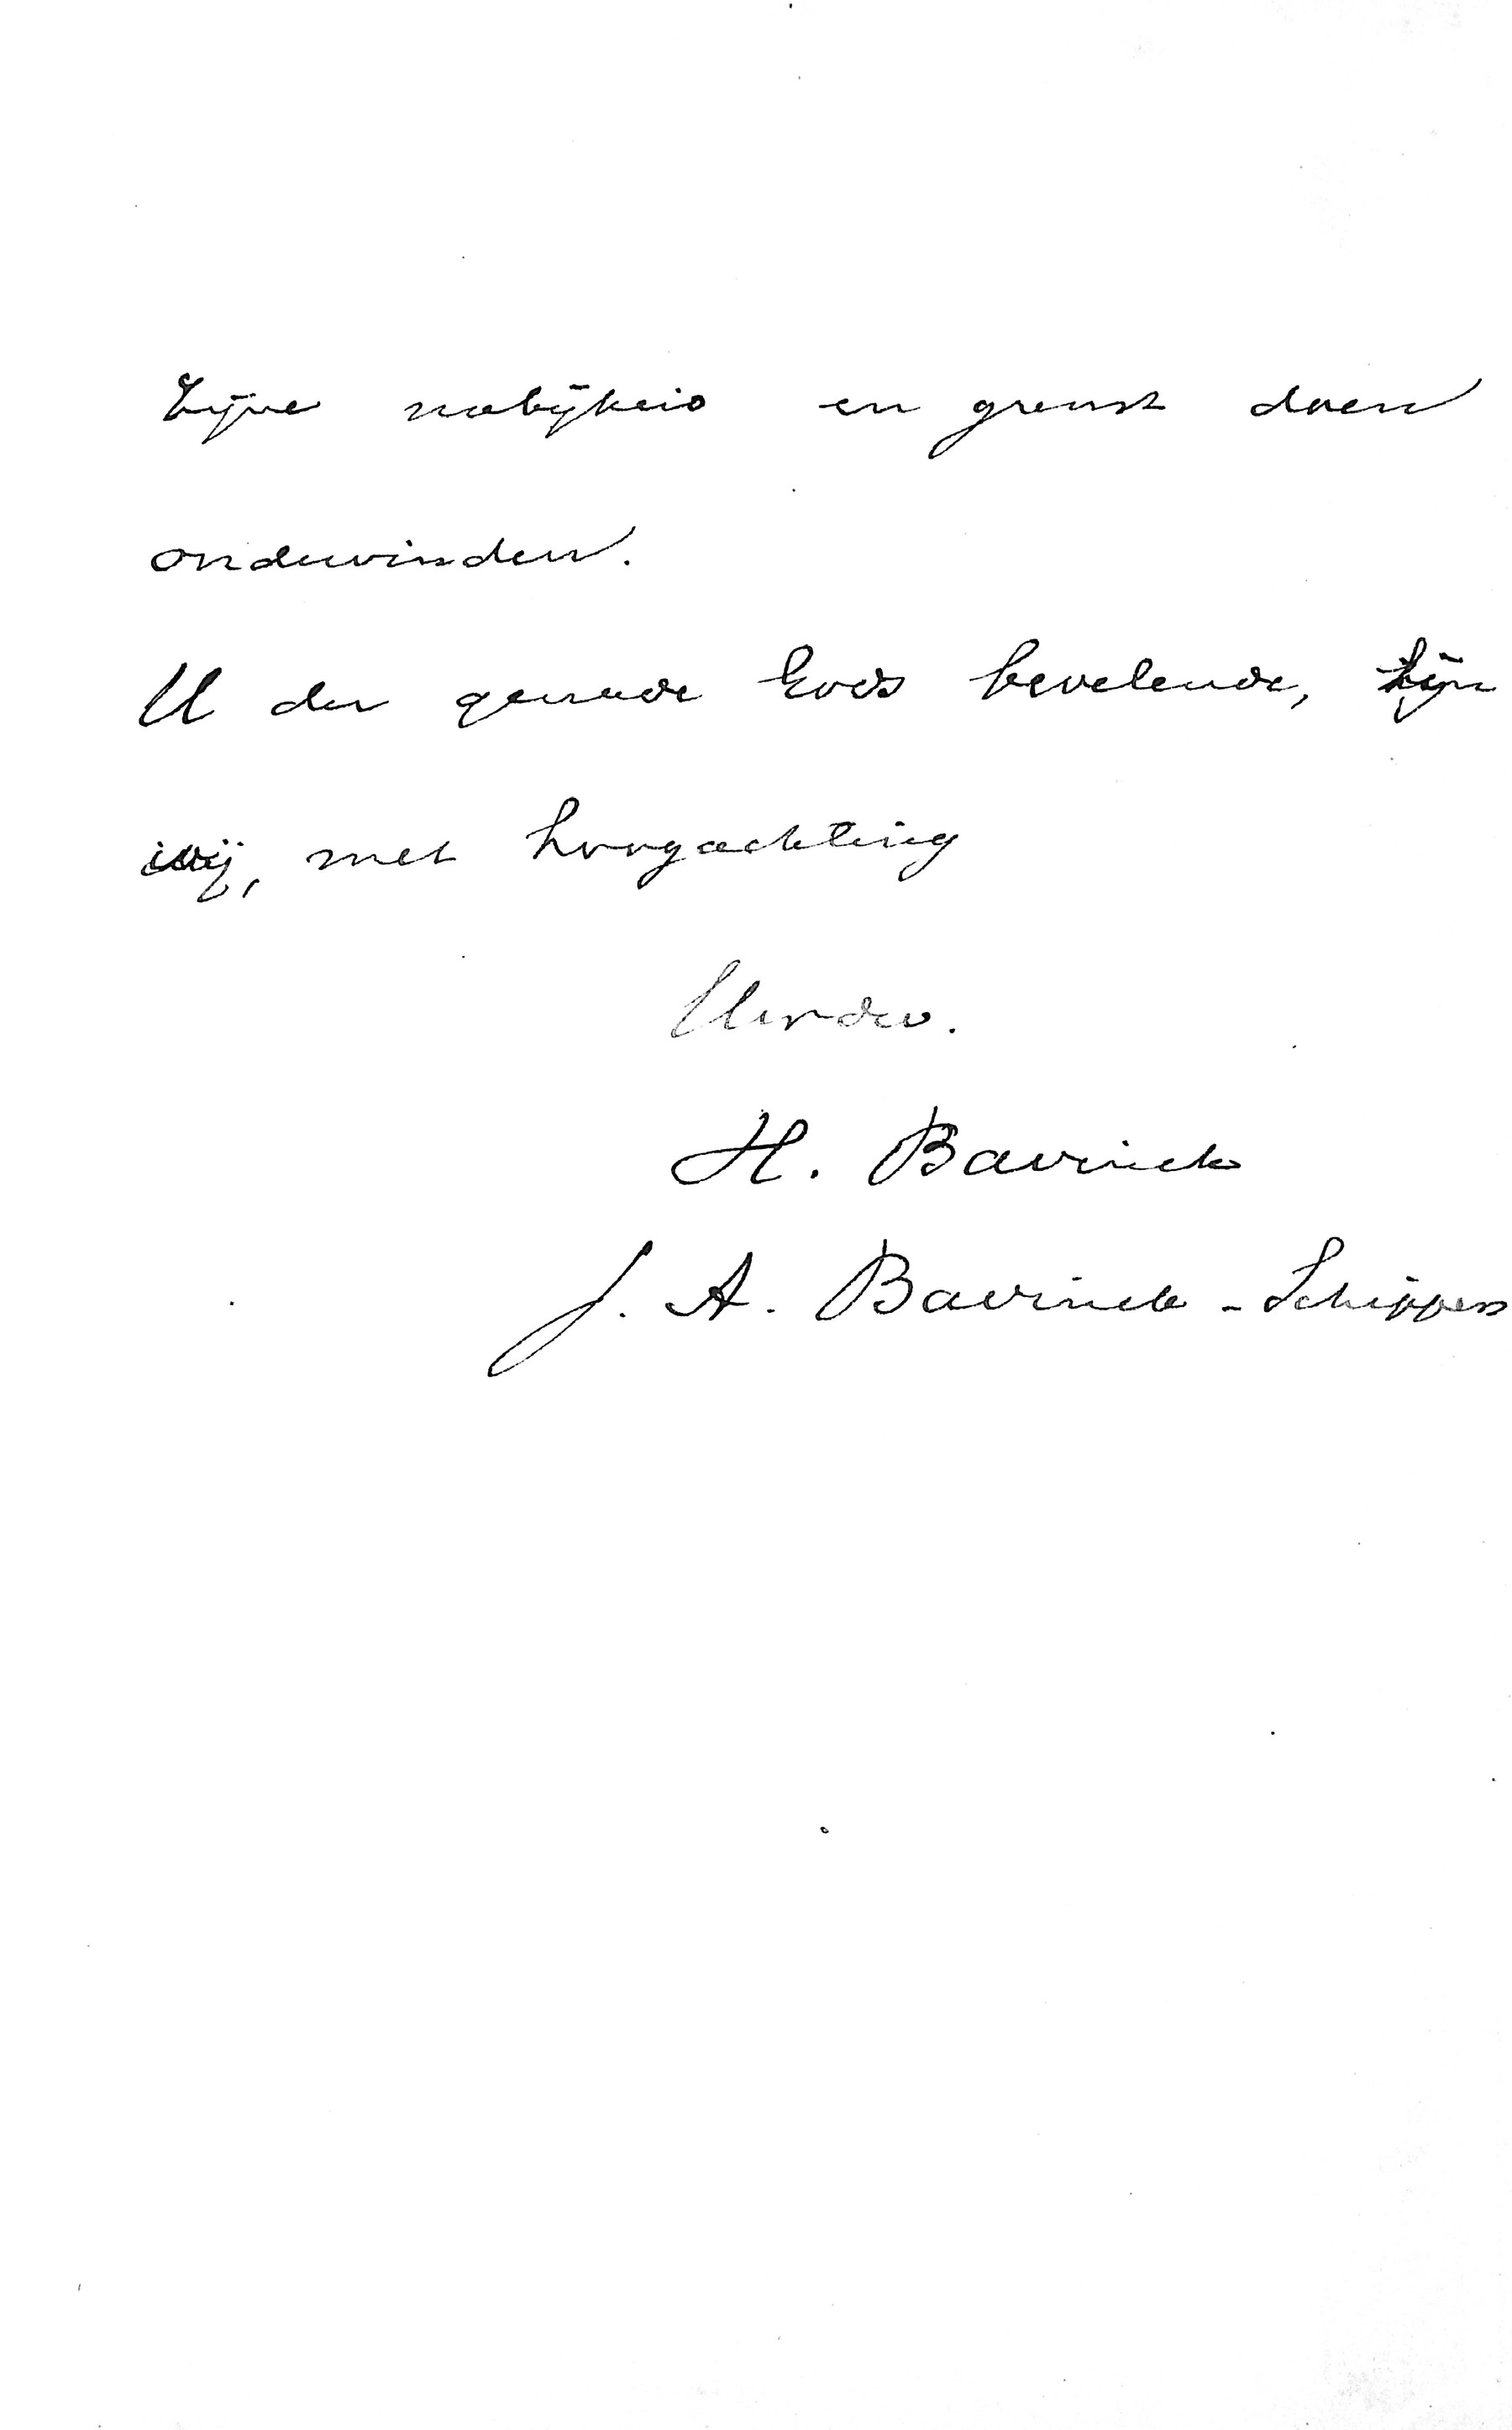 Zijne nabijheid en gunst doen
ondervinden.
U der genade Gods bevelende, zijn
wij, met hoogachting
Uwdw.
H. Bavinck
J. A. Bavinck - Schippers